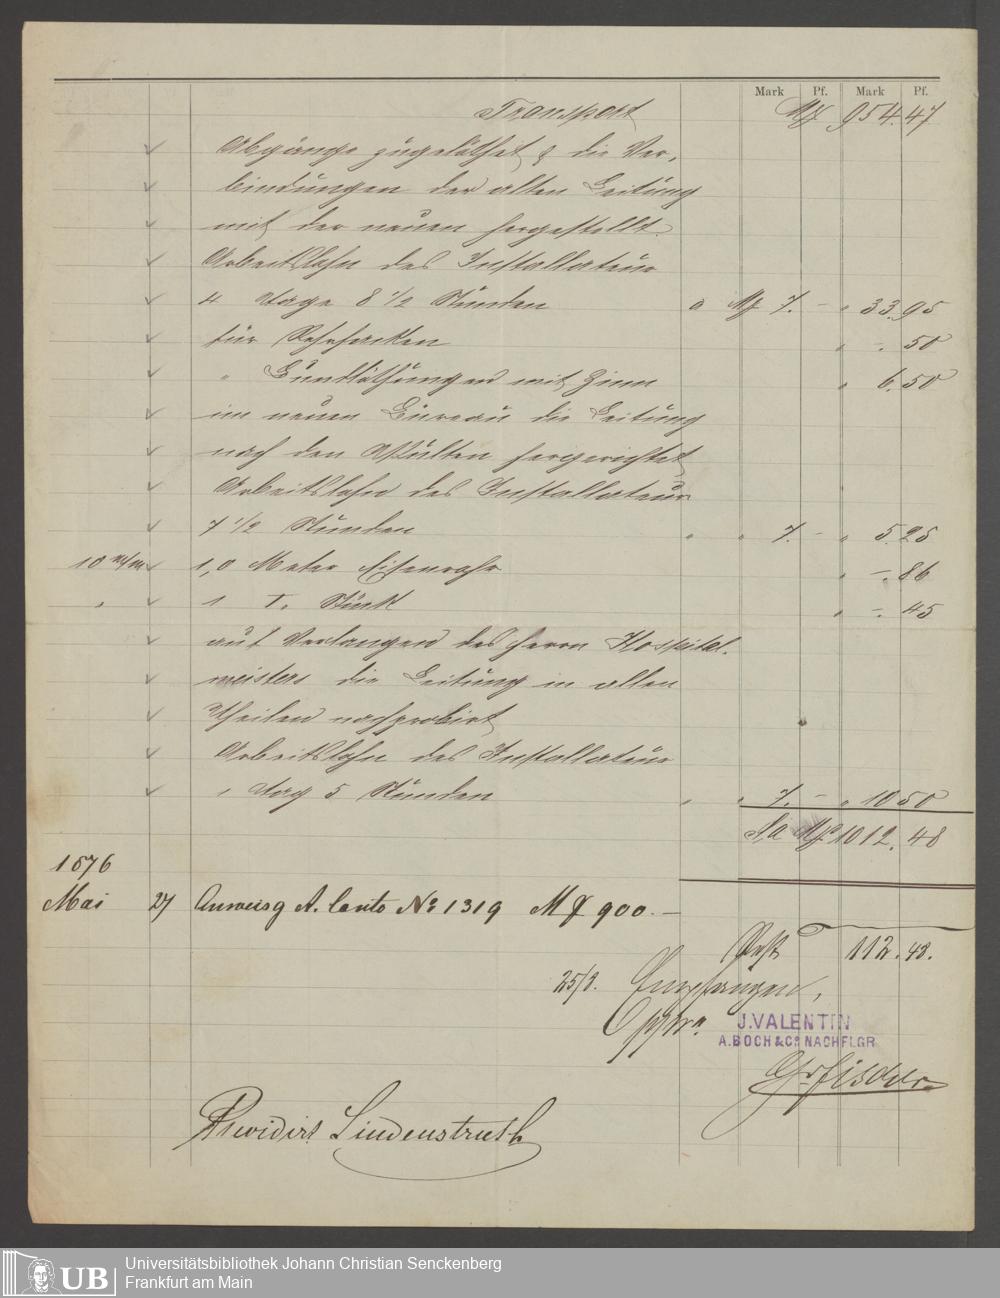 Mark Pf. Mark Pf.
Transport Mk 954.47
Abgänge zugelöthet & die Ver-
bindungen der alten Leitung
mit der neuen hergestellt.
Arbeitslohn des Installateur
4 Tage 8 1/2 Stunden a Mk 7. — „ 33.95
für Rohrhacken „ —. 50
„ Bundlöthungen mit Zinn „ 6.50
im neuen Büreau die Leitung
nach den Pulten hergerichtet
Arbeitslohn des Installateur
7 1/2 Stunden „ „ 7. — „ 5.25
10 m/m 1,0 Meter Eisenrohr „ —. 86
„ 1 T. Stück „ —. 45
auf Verlangen des Herrn Hospital-
meisters die Leitung in allen
Theilen nachprobirt
Arbeitslohn des Installateur
1 Tag 5 Stunden „ „ 7. — „ 10 50
Sa Mk 1012. 48
1876
Mai 27 Anweisg A. Conto No 1319 Mk 900. —
Rest 112. 48.
25/8. Empfangen,
J. VALENTIN
A. BOCH & Co NACHFLGR
Fischer
Revidirt Lindenstruth
UB Universitätsbibliothek Johann Christian Senckenberg
Frankfurt am Main